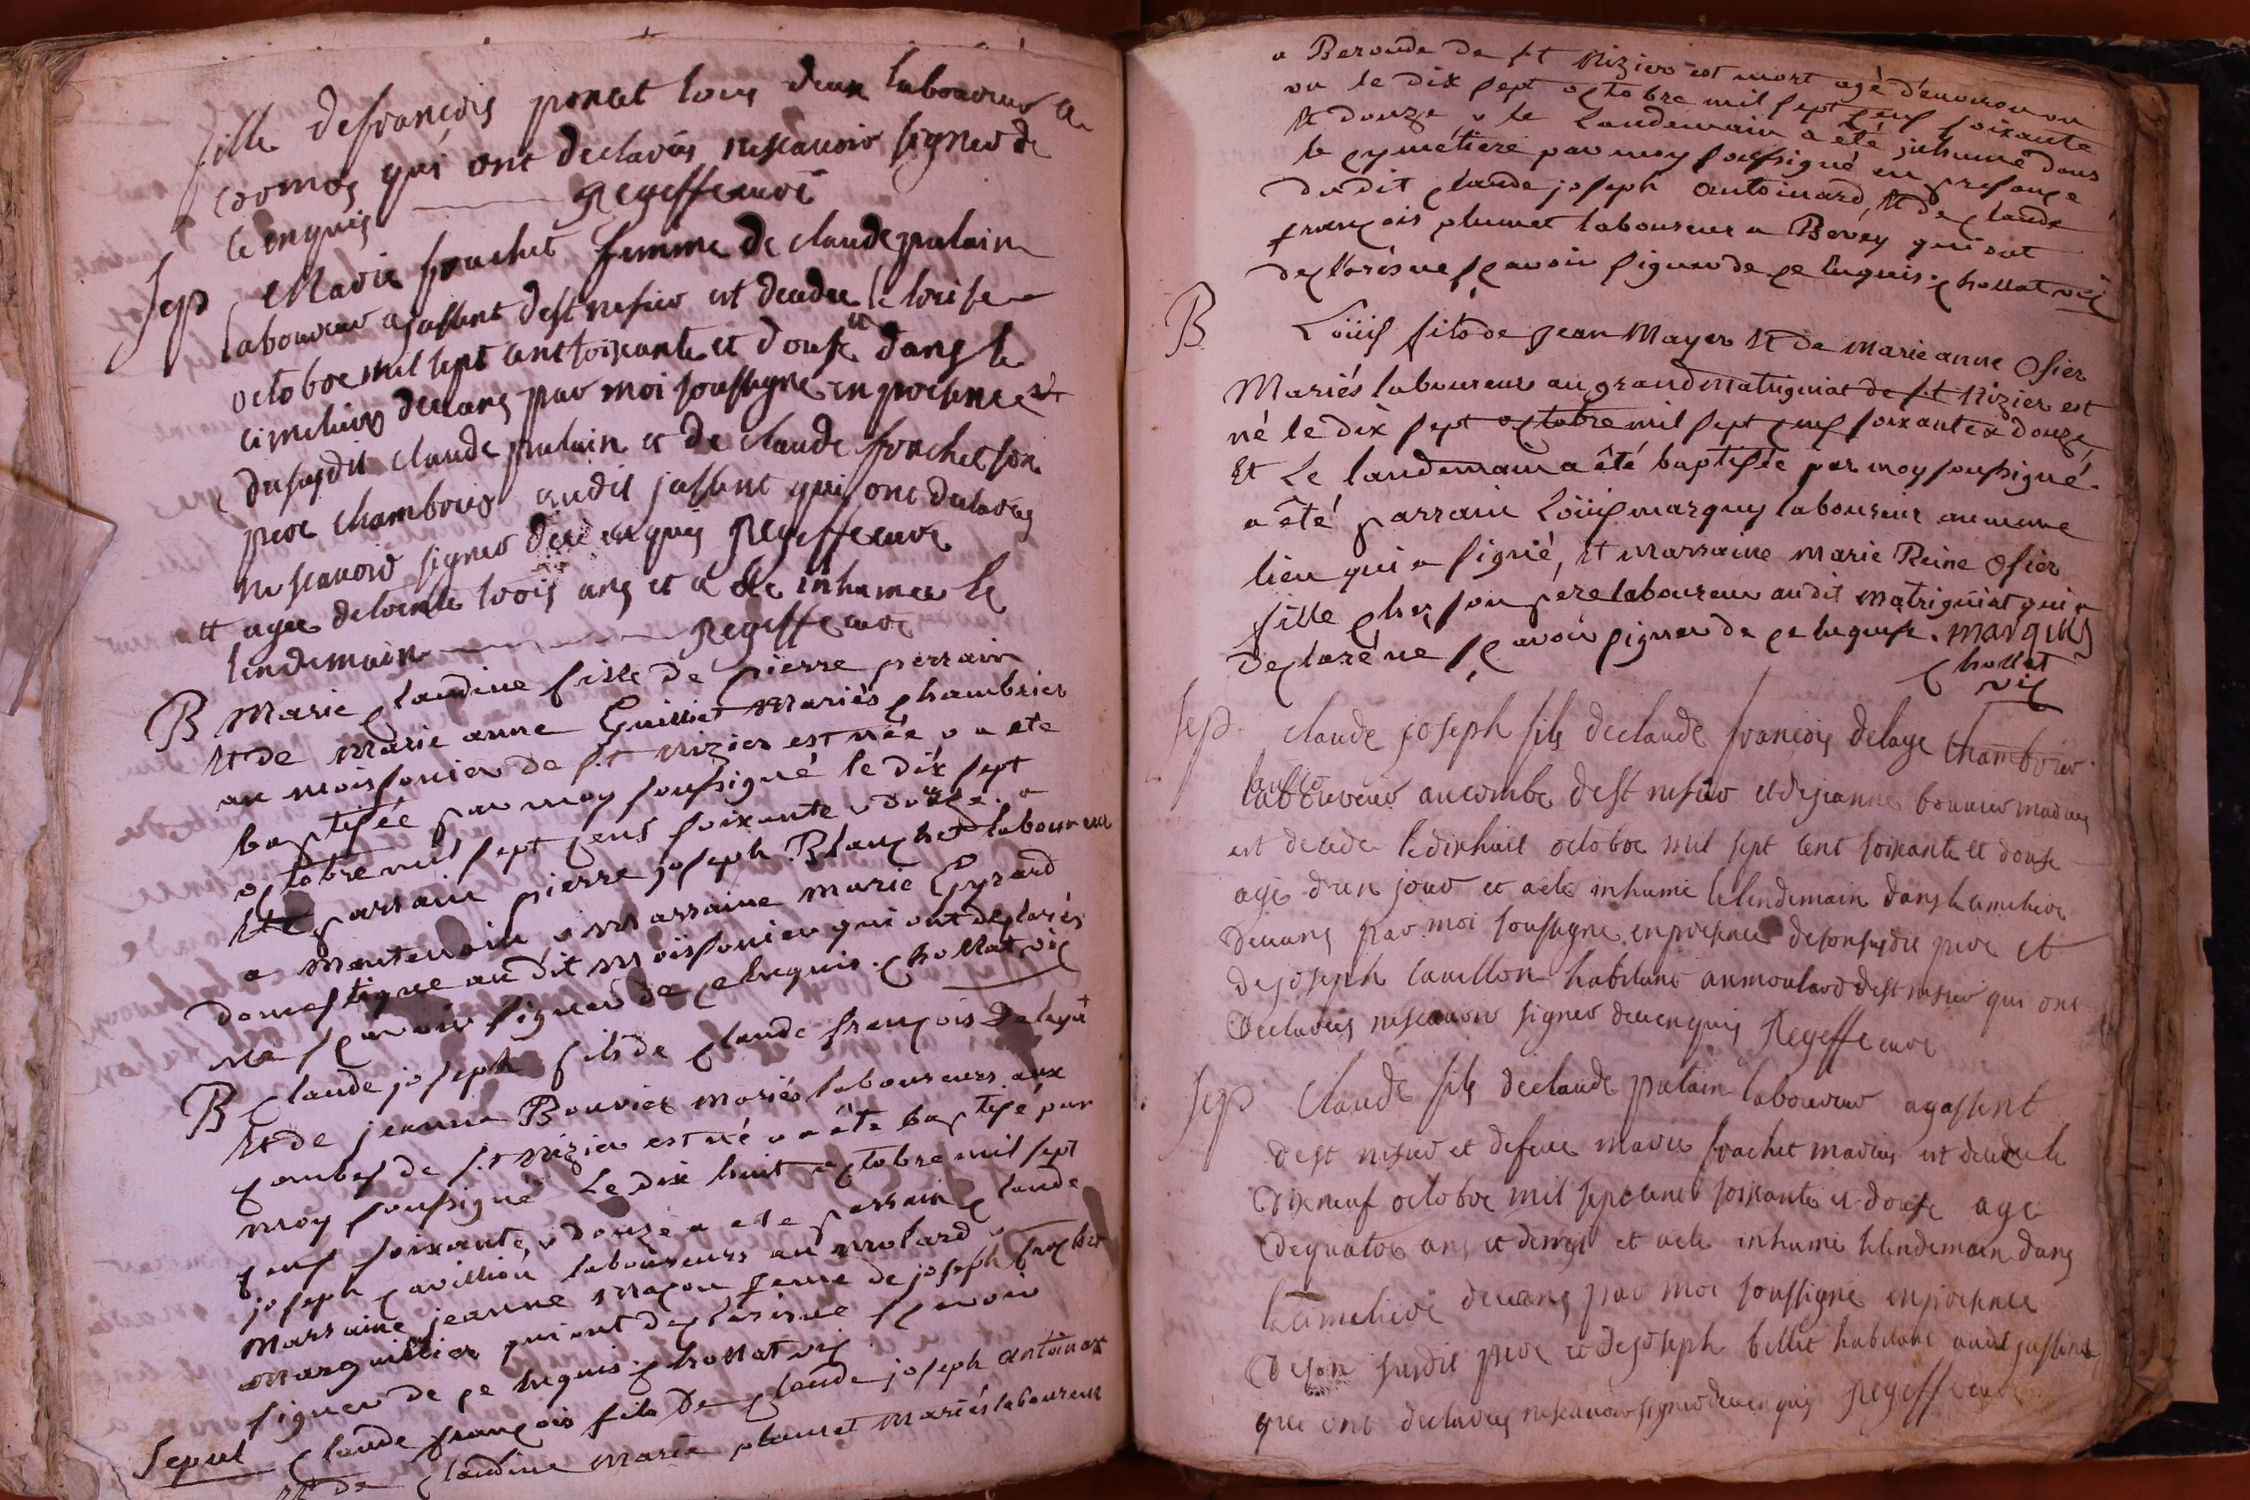 fille de françois poncet tous deux laboureur a
cormoz qui ont declarés ne scavoir signer de
ce enquis Regeffe curé
Sep Marie frachet femme de claude pulain
laboureur a jassent de st nisier est decedee le treise
octobre mil sept cent soixante et douse dans le
cimetiere ceans par moi soussigne en presence
du susdit claude pulain et de claude frachet son
pere chambrier audit jassent qui ont declarés
ne scavoir signer de ce enquis Regeffe curé
et agee de trente trois ans et a ete inhumee le
lendemain Regeffe curé
B Marie Claudine fille de pierre perrain
et de marie anne Guilliet mariés chambrier
au moissonier de s.t Nizier est née & a ete
baptisée par moy soussigné le dix sept
octobre mil sept cens soixante & douze. a
ete parrain pierre joseph Blanchet laboureur
a montenoin & marraine marie Gyrard
domestique audit moissonier qui ont declarés
ne scavoir signer de ce enquis. Chollat vic
B Claude joseph fils de Claude françois Delaya
et de jeanne Bouvier mariés laboureurs aux
combes de s.t Nizier est né & a été baptisé par
moy soussigné Le dix huit octobre mil sept
cens soixante & douze a ete parrain claude
joseph cavillion laboureurs au molard &
marraine jeanne maçon feme de joseph frachet
marguillier qui ont declarés ne scavoir
signer de ce enquis. chollat vic
Sepul Claude françois fils De Claude joseph antoinard
et de Claudine Marie plumet Mariés laboureur
a Beroude de s.t Nizier est mort agé d'environ un
an le dix sept octobre mil sept cens soixante
et douze & le Landemain a été inhumé dans
le cymétiere par moy soussigné en presance
du dit claude joseph antoinard, et de Claude
françois plumet laboureur a Berey qui ont
declarés ne scavoir signer de ce enquis. chollat vic
B Loüis fils de jean Mayer et de marie anne Ofier
Mariés laboureur au grand matrignat de s.t Nizier est
né le dix sept octobre mil sept cens soixante & douze
Et Le landemain a été baptisée par moy soussigné.
a été parrain Loüis marquis laboureur au meme
lieu qui a signé, et marraine Marie Reine Ofier
fille chez son père laboureur audit matrignat qui a
declaré ne scavoir signer de ce enquise. marquis
chollat
vic
Sep. Claude joseph fils de claude françois delaye chambrier
laboureur au combe de st nisier et de jeanne bouvier maries
est decede le dix huit octobre mil sept cent soixante et douse
agé d'un jour et a ete inhumé le lendemain dans le cimetiere
ceans par moi soussigne en presence de son susdit pere et
de joseph cavillon habitant au moulard de st nisier qui ont
declarés ne scavoir signer de ce enquis Regeffe curé
Sep Claude fils de claude pulain laboureur a jassent
de st nisier et de feue marie frachet maries est decede le
dix neuf octobre mil sept cent soixante et douse agé
de quatre ans et demy et a ete inhumé le lendemain dans
le cimetiere ceans par moi soussigné en presence
de son susdit pere et de joseph billet habitant audit jassent
qui ont declares ne scavoir signer de ce enquis Regeffe curé